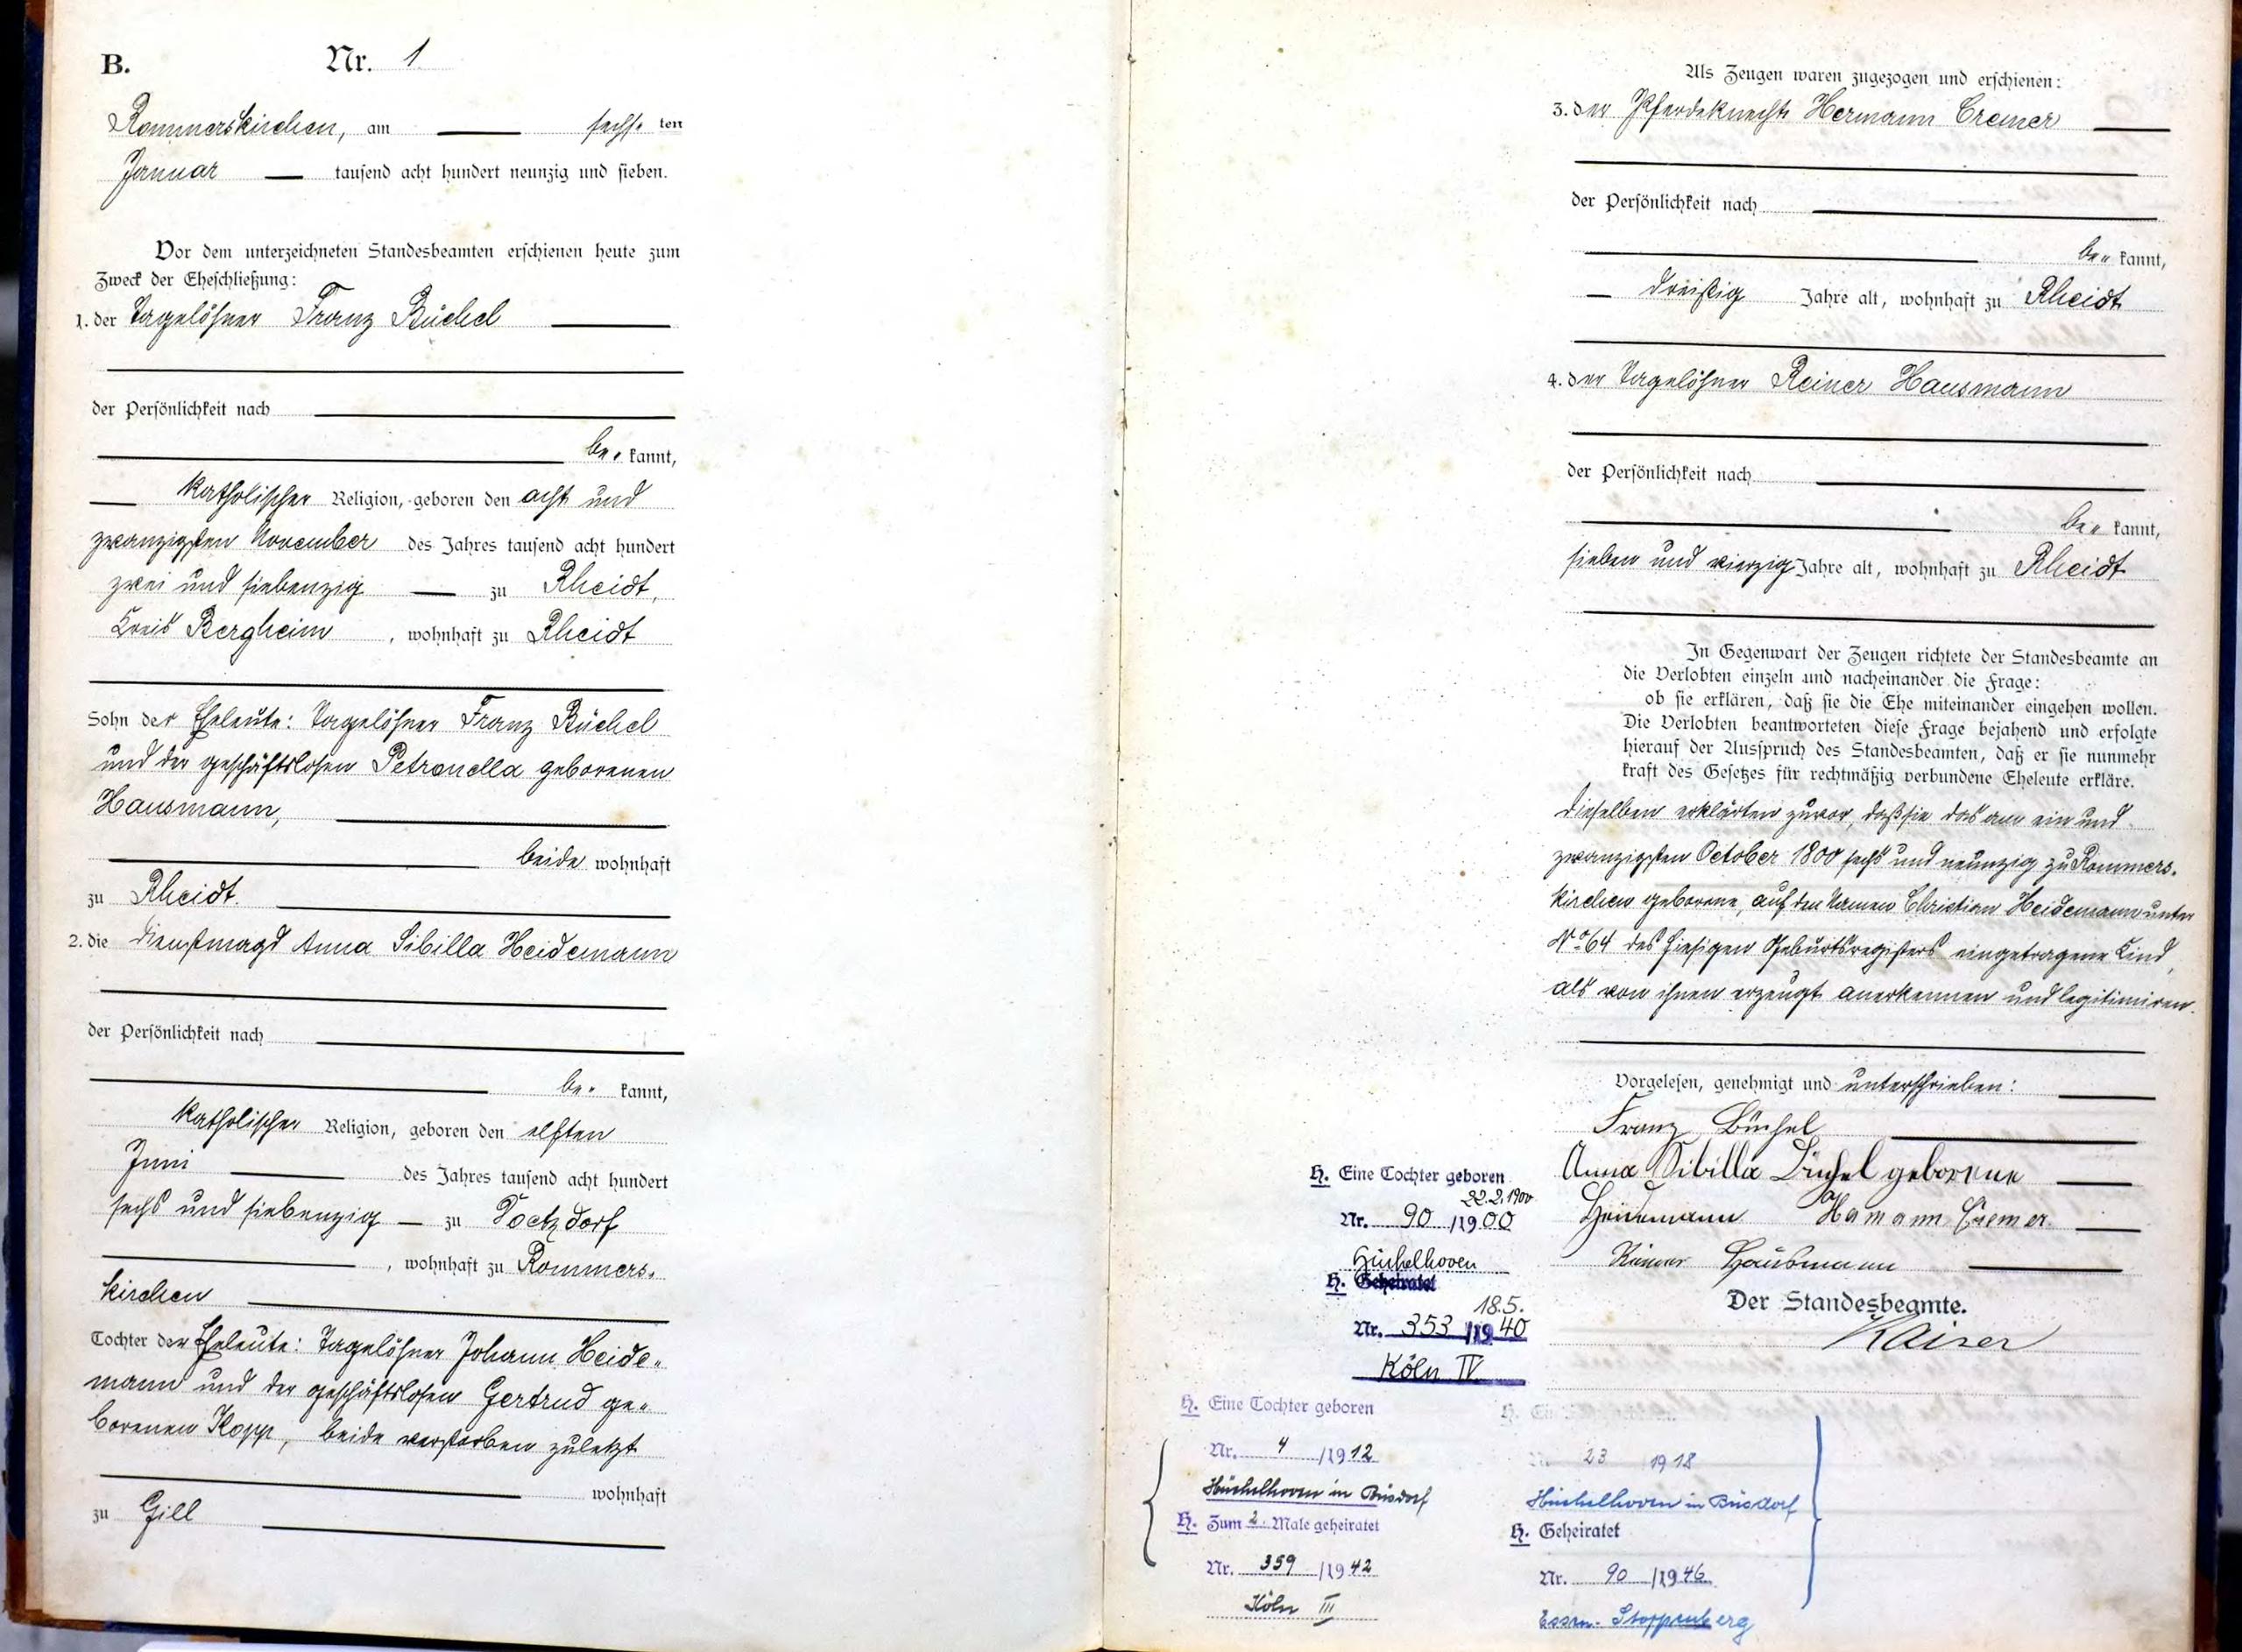 B. Nr. 1
Rommerskirchen, am sechs ten
Januar tausend acht hundert neunzig und sieben.
Vor dem unterzeichneten Standesbeamten erschienen heute zum
Zweck der Eheschließung:
1. der Tagelöhner Franz Büchel
der Persönlichkeit nach
be= kannt,
katholischer Religion, geboren den acht und
zwanzigsten November des Jahres tausend acht hundert
zwei und siebenzig zu Rheidt,
Kreis Bergheim, wohnhaft zu Rheidt
Sohn der Eheleute: Tagelöhner Franz Büchel
und der geschäftslosen Petronella geborenen
Hausmann,
beide wohnhaft
zu Rheidt.
2. die Dienstmagd Anna Sibilla Heidemann
der Persönlichkeit nach
be= kannt,
katholischer Religion, geboren den elften
Juni des Jahres tausend acht hundert
sechs und siebenzig zu Poetzdorf
, wohnhaft zu Rommers=
kirchen
Tochter der Eheleute: Tagelöhner Johann Heide=
mann und der geschäftslosen Gertrud ge=
borenen Kopp, beide verstorben zuletzt
wohnhaft
zu Gill
Als Zeugen waren zugezogen und erschienen:
3. der Pferdeknecht Hermann Cremer
der Persönlichkeit nach
be= kannt,
dreißig Jahre alt, wohnhaft zu Rheidt
4. der Tagelöhner Reiner Hausmann
der Persönlichkeit nach
be= kannt,
sieben und vierzig Jahre alt, wohnhaft zu Rheidt
In Gegenwart der Zeugen richtete der Standesbeamte an
die Verlobten einzeln und nacheinander die Frage:
ob sie erklären, daß sie die Ehe miteinander eingehen wollen.
Die Verlobten beantworteten diese Frage bejahend und erfolgte
hierauf der Ausspruch des Standesbeamten, daß er sie nunmehr
kraft des Gesetzes für rechtmäßig verbundene Eheleute erkläre.
Dieselben erklärten zuvor, daß sie das am ein und
zwanzigsten October 1800 sechs und neunzig zu Rommers=
kirchen geborene, auf den Namen Christian Heidemann unter
No 64 des hiesigen Geburtsregisters eingetragene Kind,
als von ihnen erzeugt anerkennen und legitimiren.
Vorgelesen, genehmigt und unterschrieben:
Franz Büchel
Anna Sibilla Büchel geborene
Heidemann Hermann Cremer
Reiner Hausmann
Der Standesbeamte.
Kaiser
H. Eine Tochter geboren
22.2.1900
Nr. 90 /1900
Hüchelhoven
H. Geheiratet
18.5.
Nr. 353 /1940
Köln IV
H. Eine Tochter geboren
Nr. 4 /1912
Hüchelhoven in Büsdorf
H. Zum 2. Male geheiratet
Nr. 359 /1942
Köln III
H. Ein
Nr. 23 1918
Hüchelhoven in Büsdorf
H. Geheiratet
Nr. 90 /1946
Essen-Stoppenberg